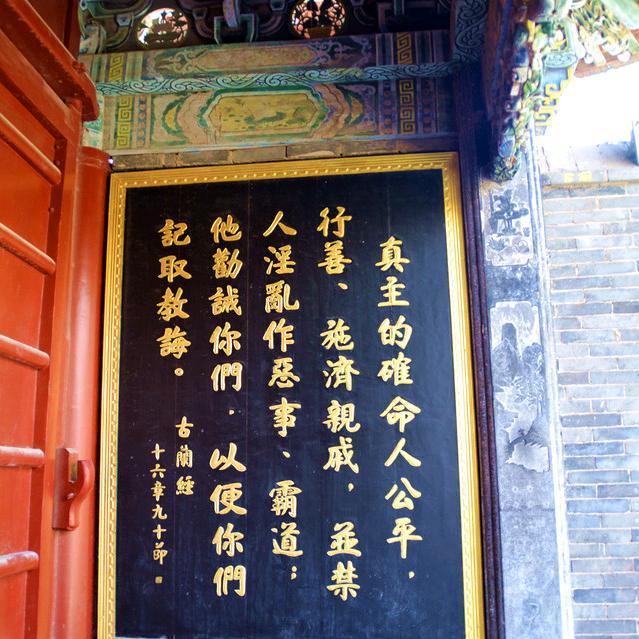 真主的確命人公平，
行善、施濟親戚，並禁
人淫亂作惡事、霸道；
他勸誡你們，以便你們
記取教誨。
古蘭經
十六章九十節